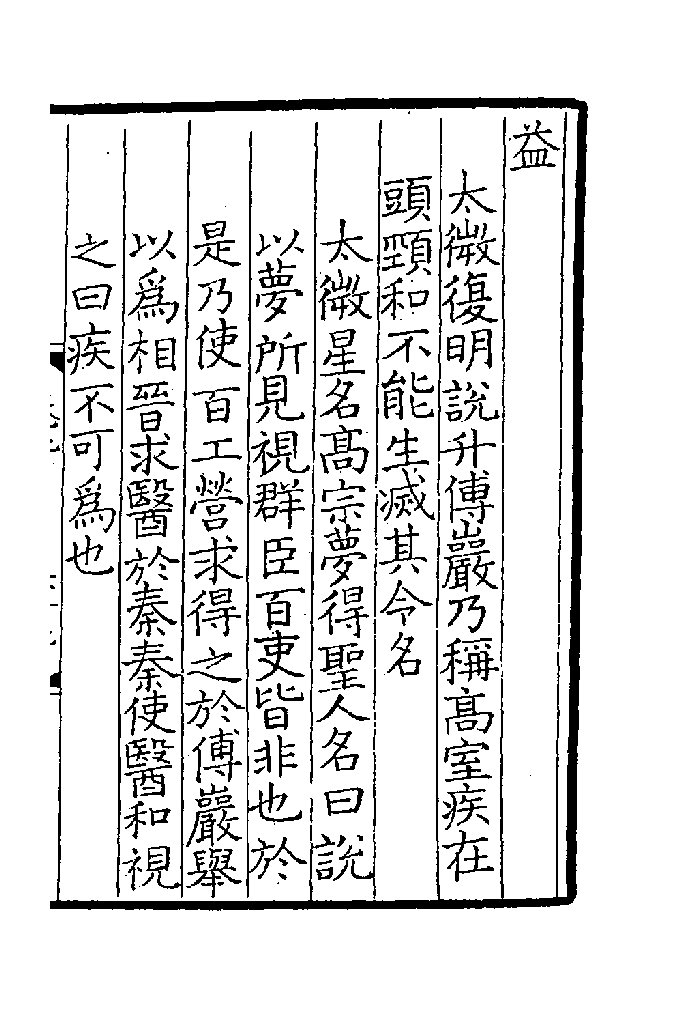 益
太微復明說升傅巖乃稱髙室疾在
頭頸和不能生滅其令名
太微星名髙宗夢得聖人名曰說
以夢所見視群臣百吏皆非也於
是乃使百工營求得之於傅巖舉
以為相晉求醫於秦秦使醫和視
之曰疾不可為也